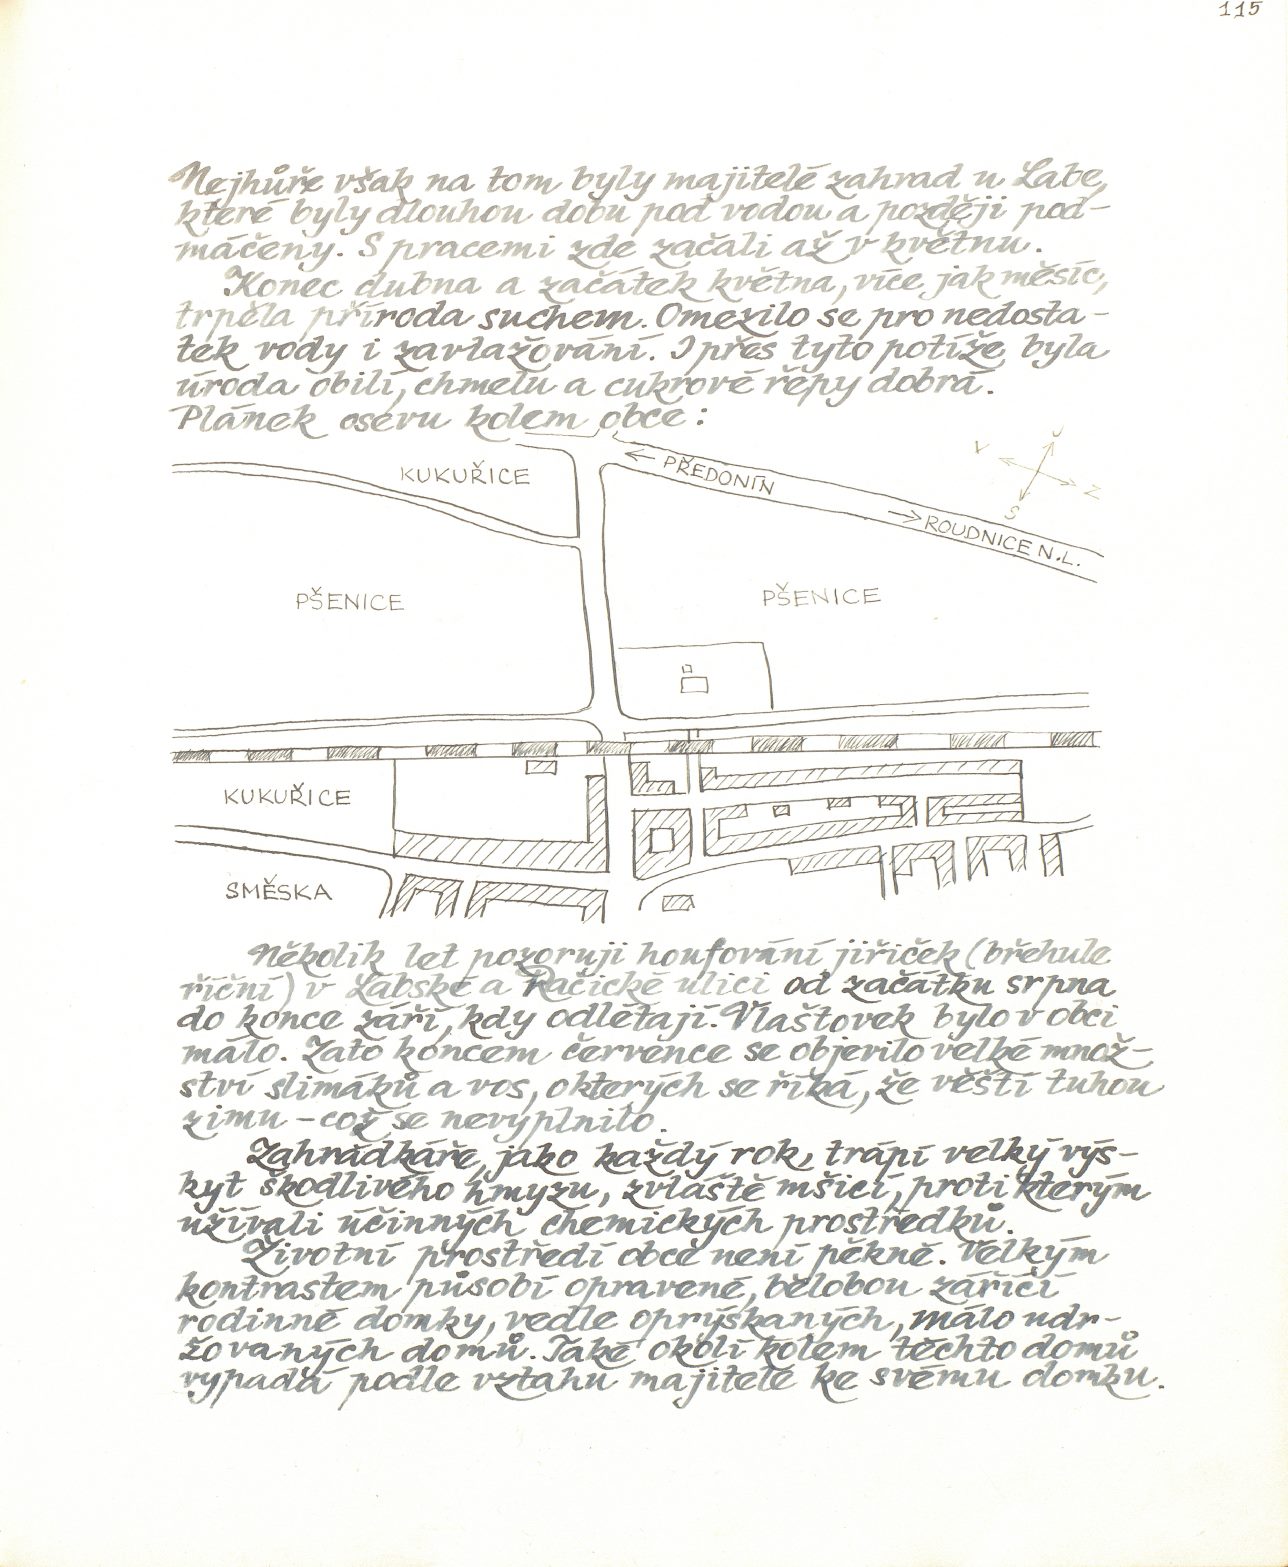 115
Nejhůře však na tom byly majitelé zahrad u Labe,
které byly dlouhou dobu pod vodou a později pod-
máčeny. S pracemi zde začali až v květnu.
Konec dubna a začátek května, více jak měsíc,
trpěla příroda suchem. Omezilo se pro nedosta-
tek vody i zavlažování. I přes tyto potíže byla
úroda obilí, chmelu a cukrové řepy dobrá.
Plánek osevu kolem obce:
J
V
Z
S
KUKUŘICE
← PŘEDONÍN
→ ROUDNICE N.L.
PŠENICE
PŠENICE
KUKUŘICE
SMĚSKA
Několik let pozoruji houfování jiřiček (břehule
říční) v Labské a Račické ulici od začátku srpna
do konce září, kdy odlétají. Vlaštovek bylo v obci
málo. Zato koncem července se objevilo velké množ-
ství slimáků a vos, o kterých se říká, že věští tuhou
zimu – což se nevyplnilo.
Zahrádkáře, jako každý rok, trápí velký výs-
kyt škodlivého hmyzu, zvláště mšicí, proti kterým
užívali účinných chemických prostředků.
Životní prostředí obce není pěkné. Velkým
kontrastem působí opravené, bělobou zářící
rodinné domky, vedle oprýskaných, málo udr-
žovaných domů. Také okolí kolem těchto domů
vypadá podle vztahu majitele ke svému domku.